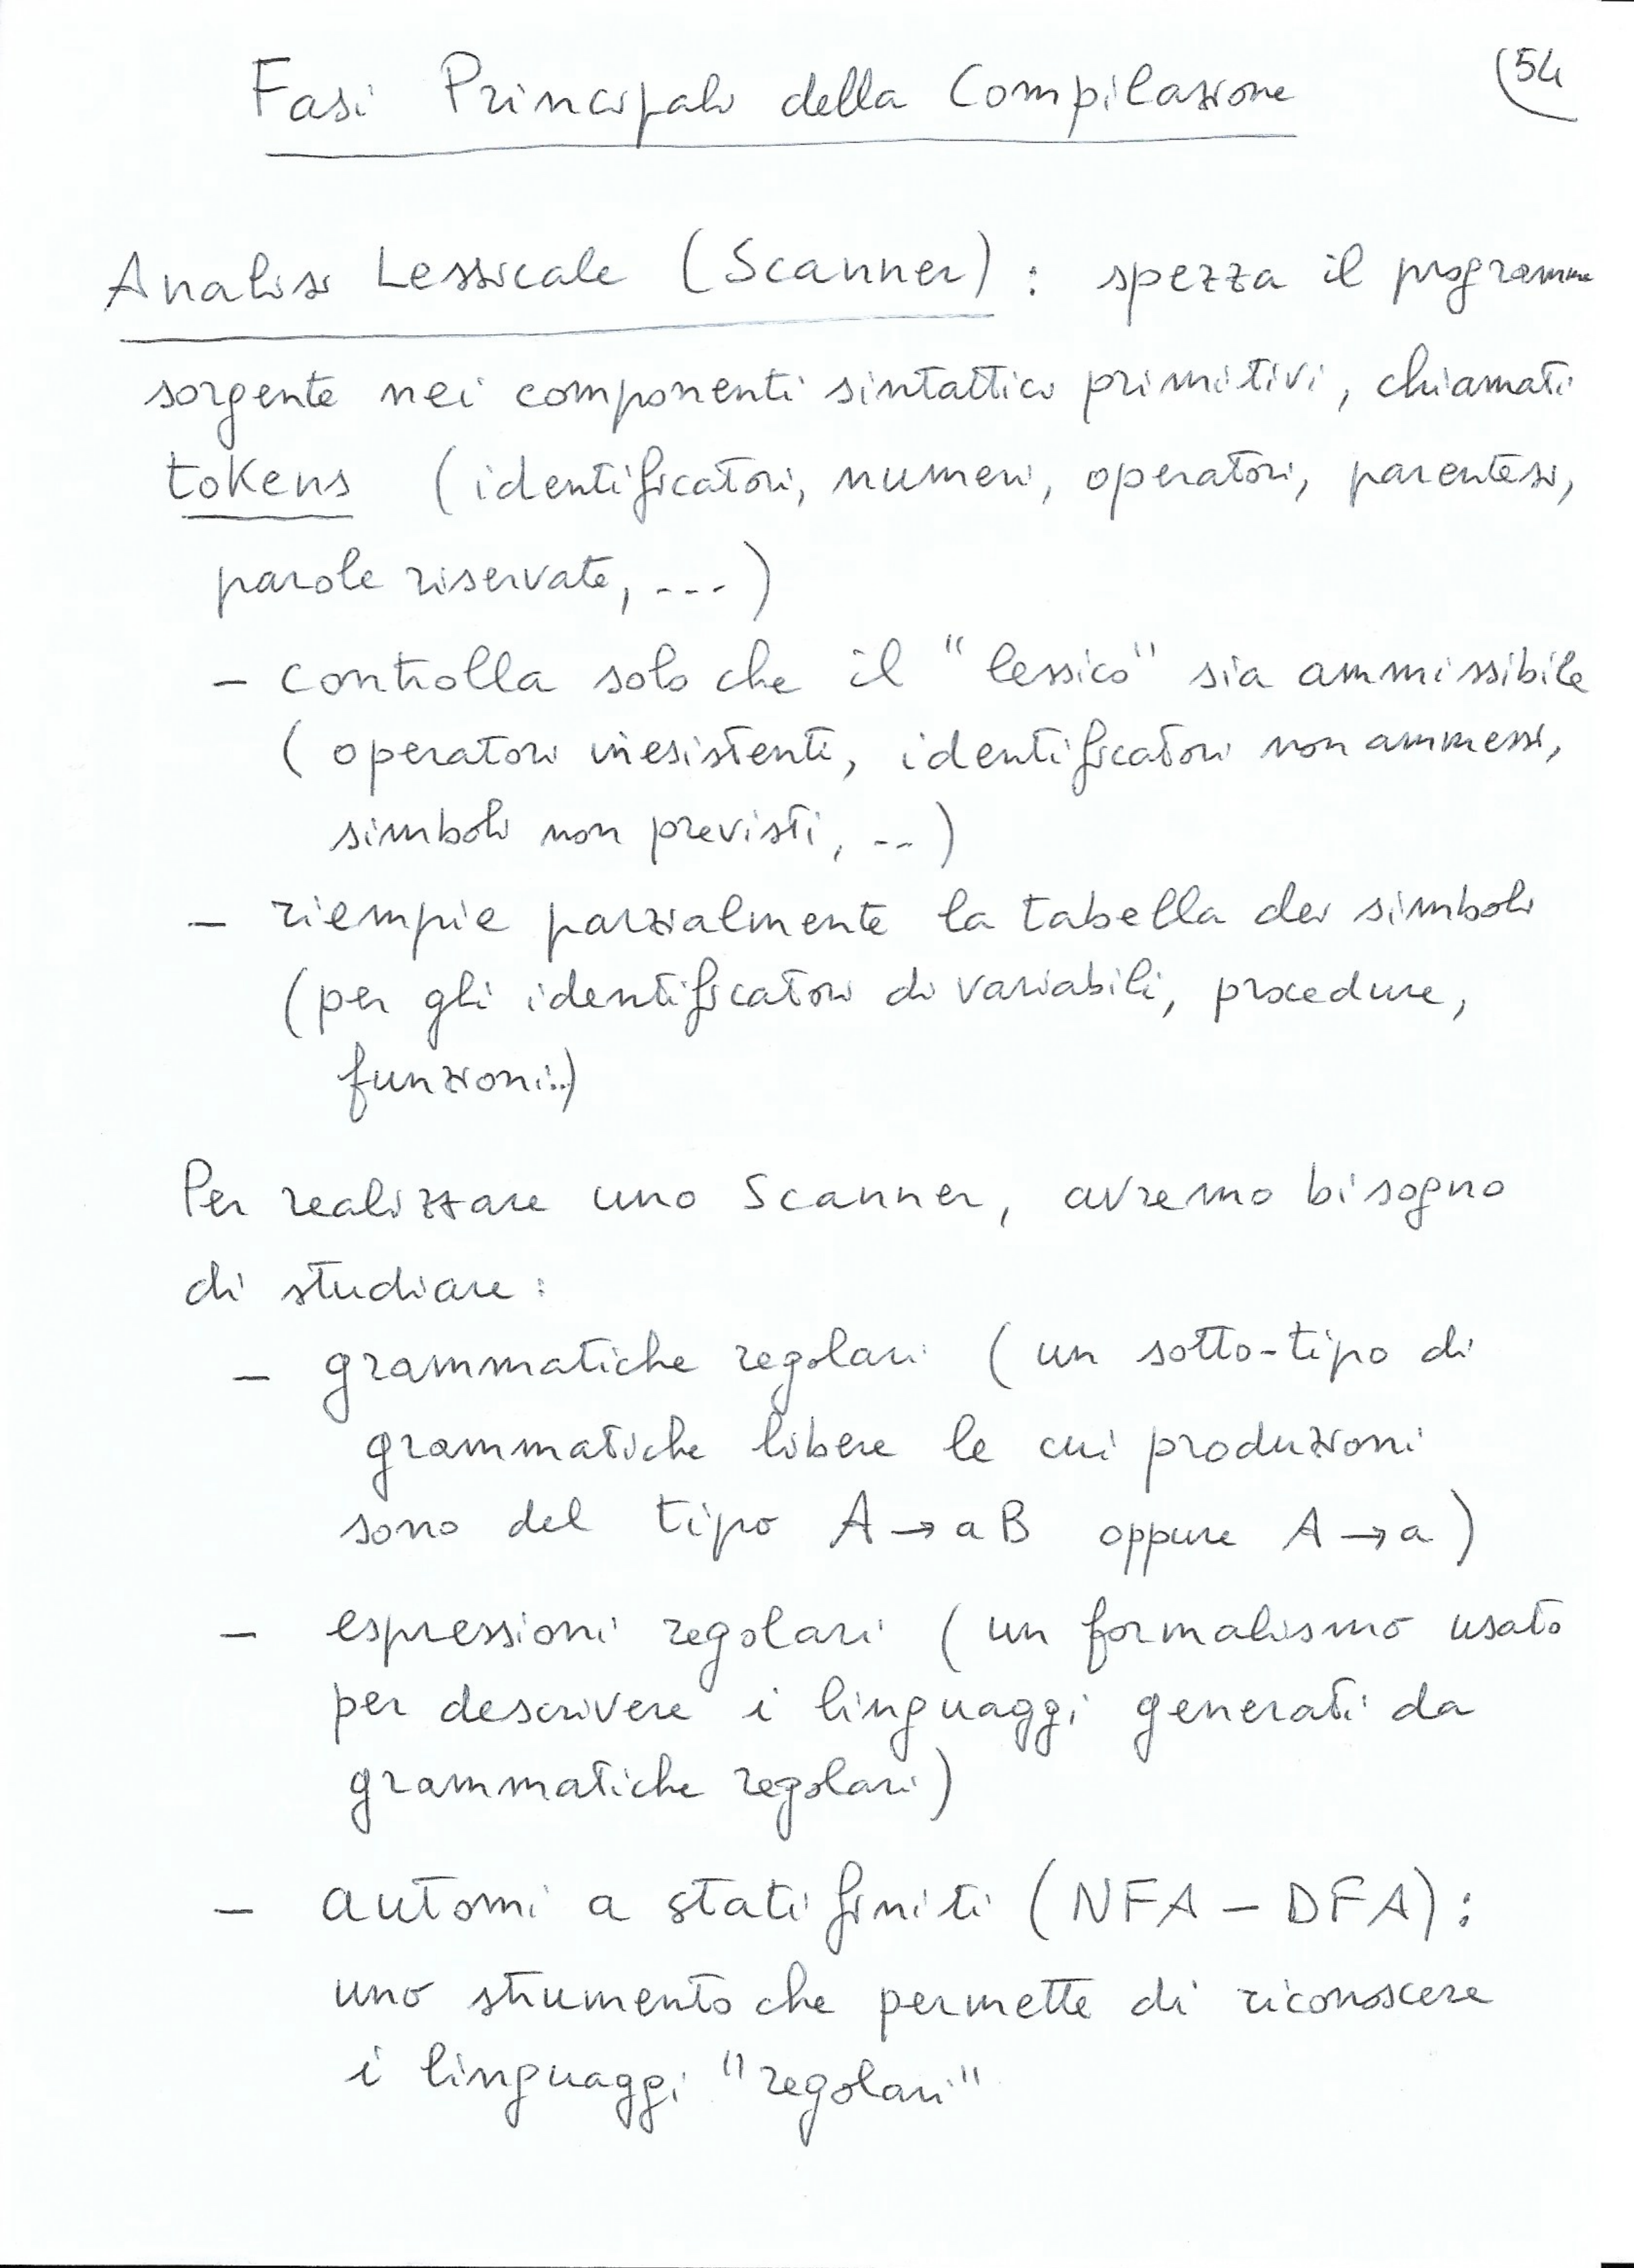 54
Fasi Principali della Compilazione
Analisi Lessicale (Scanner) : spezza il programma
sorgente nei componenti sintattici primitivi, chiamati
tokens (identificatori, numeri, operatori, parentesi,
parole riservate, ---)
- controlla solo che il "lessico" sia ammissibile
( operatori inesistenti, identificatori non ammessi,
simboli non previsti, --)
- riempie parzialmente la tabella dei simboli
(per gli identificatori di variabili, procedure,
funzioni..)
Per realizzare uno Scanner, avremo bisogno
di studiare :
- grammatiche regolari ( un sotto-tipo di
grammatiche libere le cui produzioni
sono del tipo A → aB oppure A → a )
- espressioni regolari ( un formalismo usato
per descrivere i linguaggi generati da
grammatiche regolari)
- automi a stati finiti (NFA - DFA) :
uno strumento che permette di riconoscere
i linguaggi "regolari"